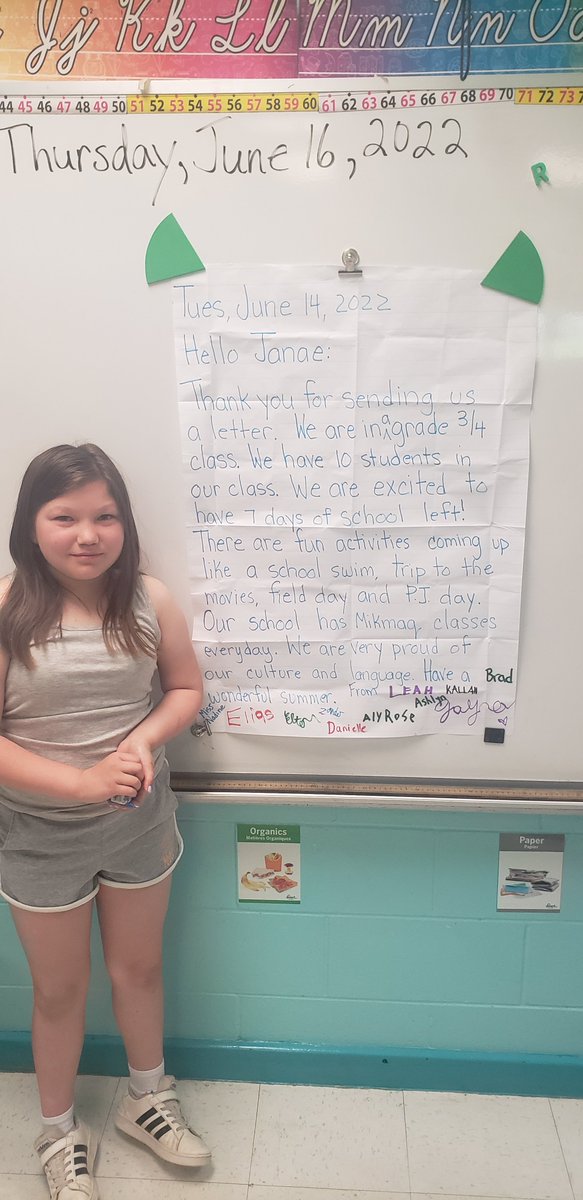 Jj Kk Ll Mm Nn Oo
44 45 46 47 48 49 50 51 52 53 54 55 56 57 58 59 60 61 62 63 64 65 66 67 68 69 70 71 72 73
Thursday, June 16, 2022
R
Tues, June 14, 2022
Hello Janae:
Thank you for sending us
a letter. We are in a grade 3/4
class. We have 10 students in
our class. We are excited to
have 7 days of school left!
There are fun activities coming up
like a school swim, trip to the
movies, field day and P.J. day.
Our school has Mikmaq classes
everyday. We are very proud of
our culture and language. Have a
wonderful summer. From
Brad
LEAH KALLAN
Ashlyn
Jayna
Miss Nadine
Elias
Danielle
AlyRose
Organics
Matières Organiques
Paper
Papier